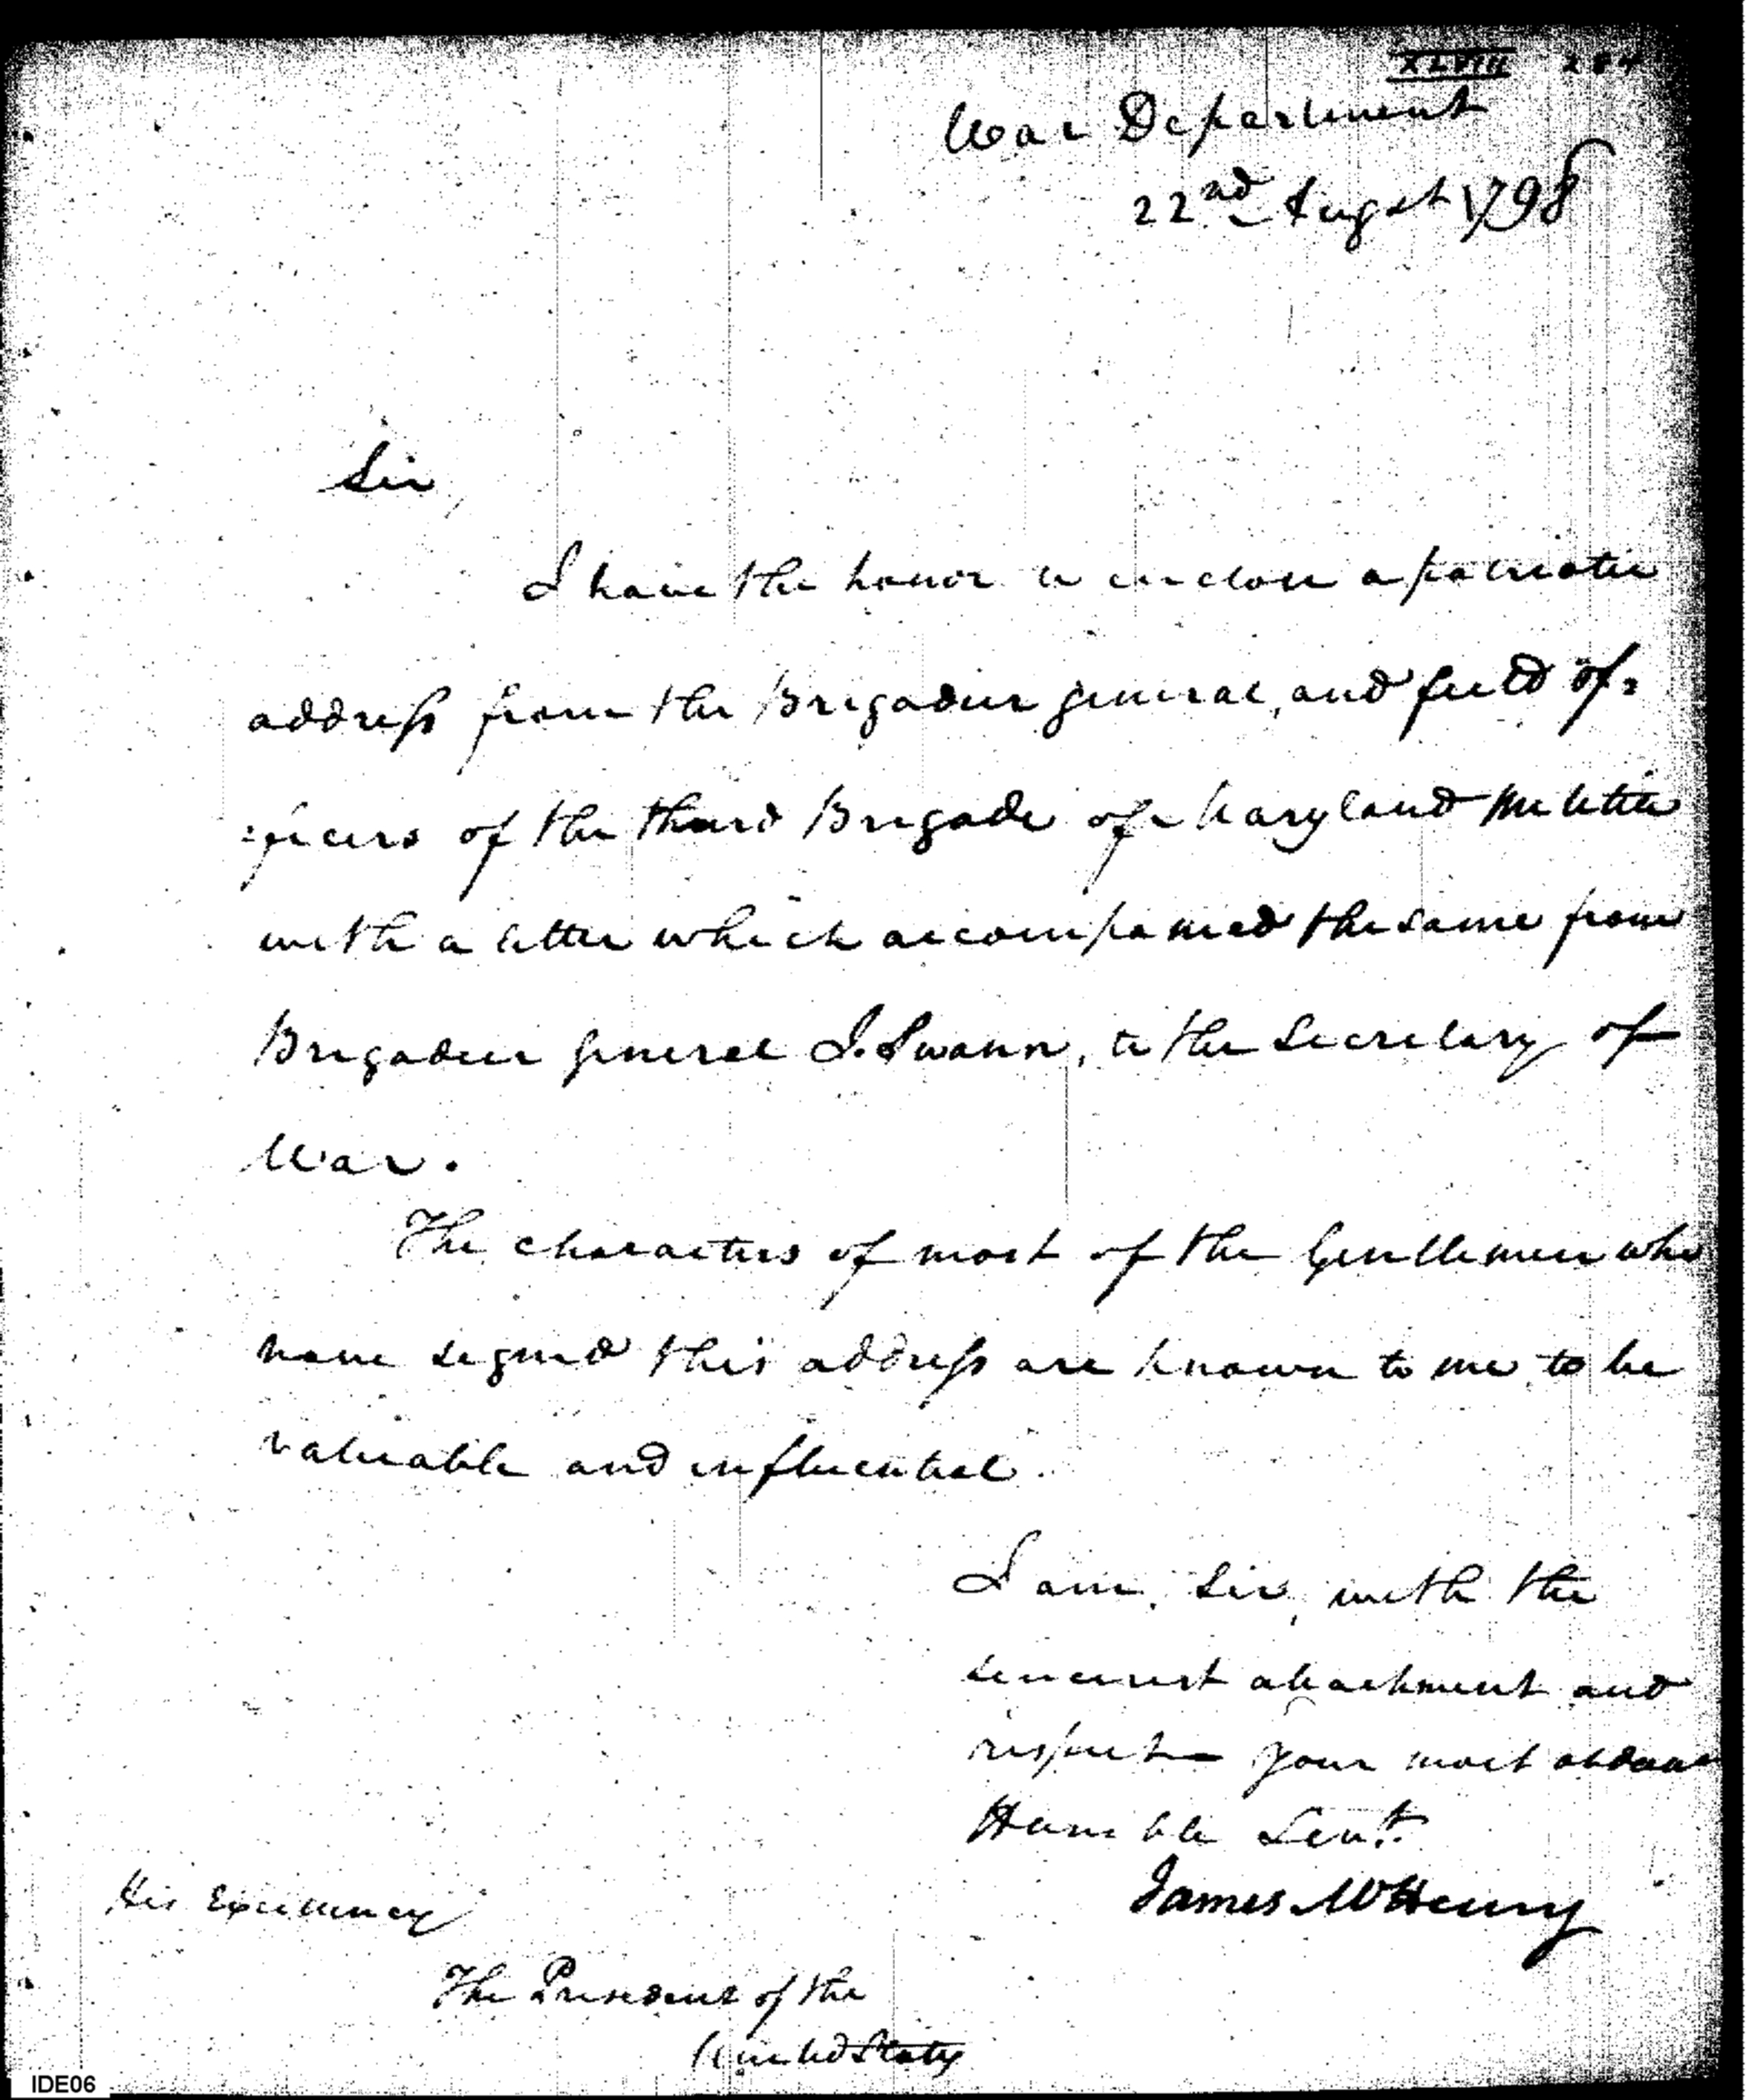 XLVIII 284
War Department
22nd August 1798
Sir,
I have the honor to enclose a patriotic
address from the Brigadier general, and field of=
=ficers of the third Brigade of Maryland Militia
with a letter which accompanied the same from
Brigadier general J. Swann, to the Secretary of
War.
The characters of most of the Gentlemen who
have signed this address are known to me to be
valuable and influential.
I am, Sir, with the
sincerest attachment and
respect your most obedient
Humble Servt.
James McHenry
His Excellency
The President of the
United States
IDE06